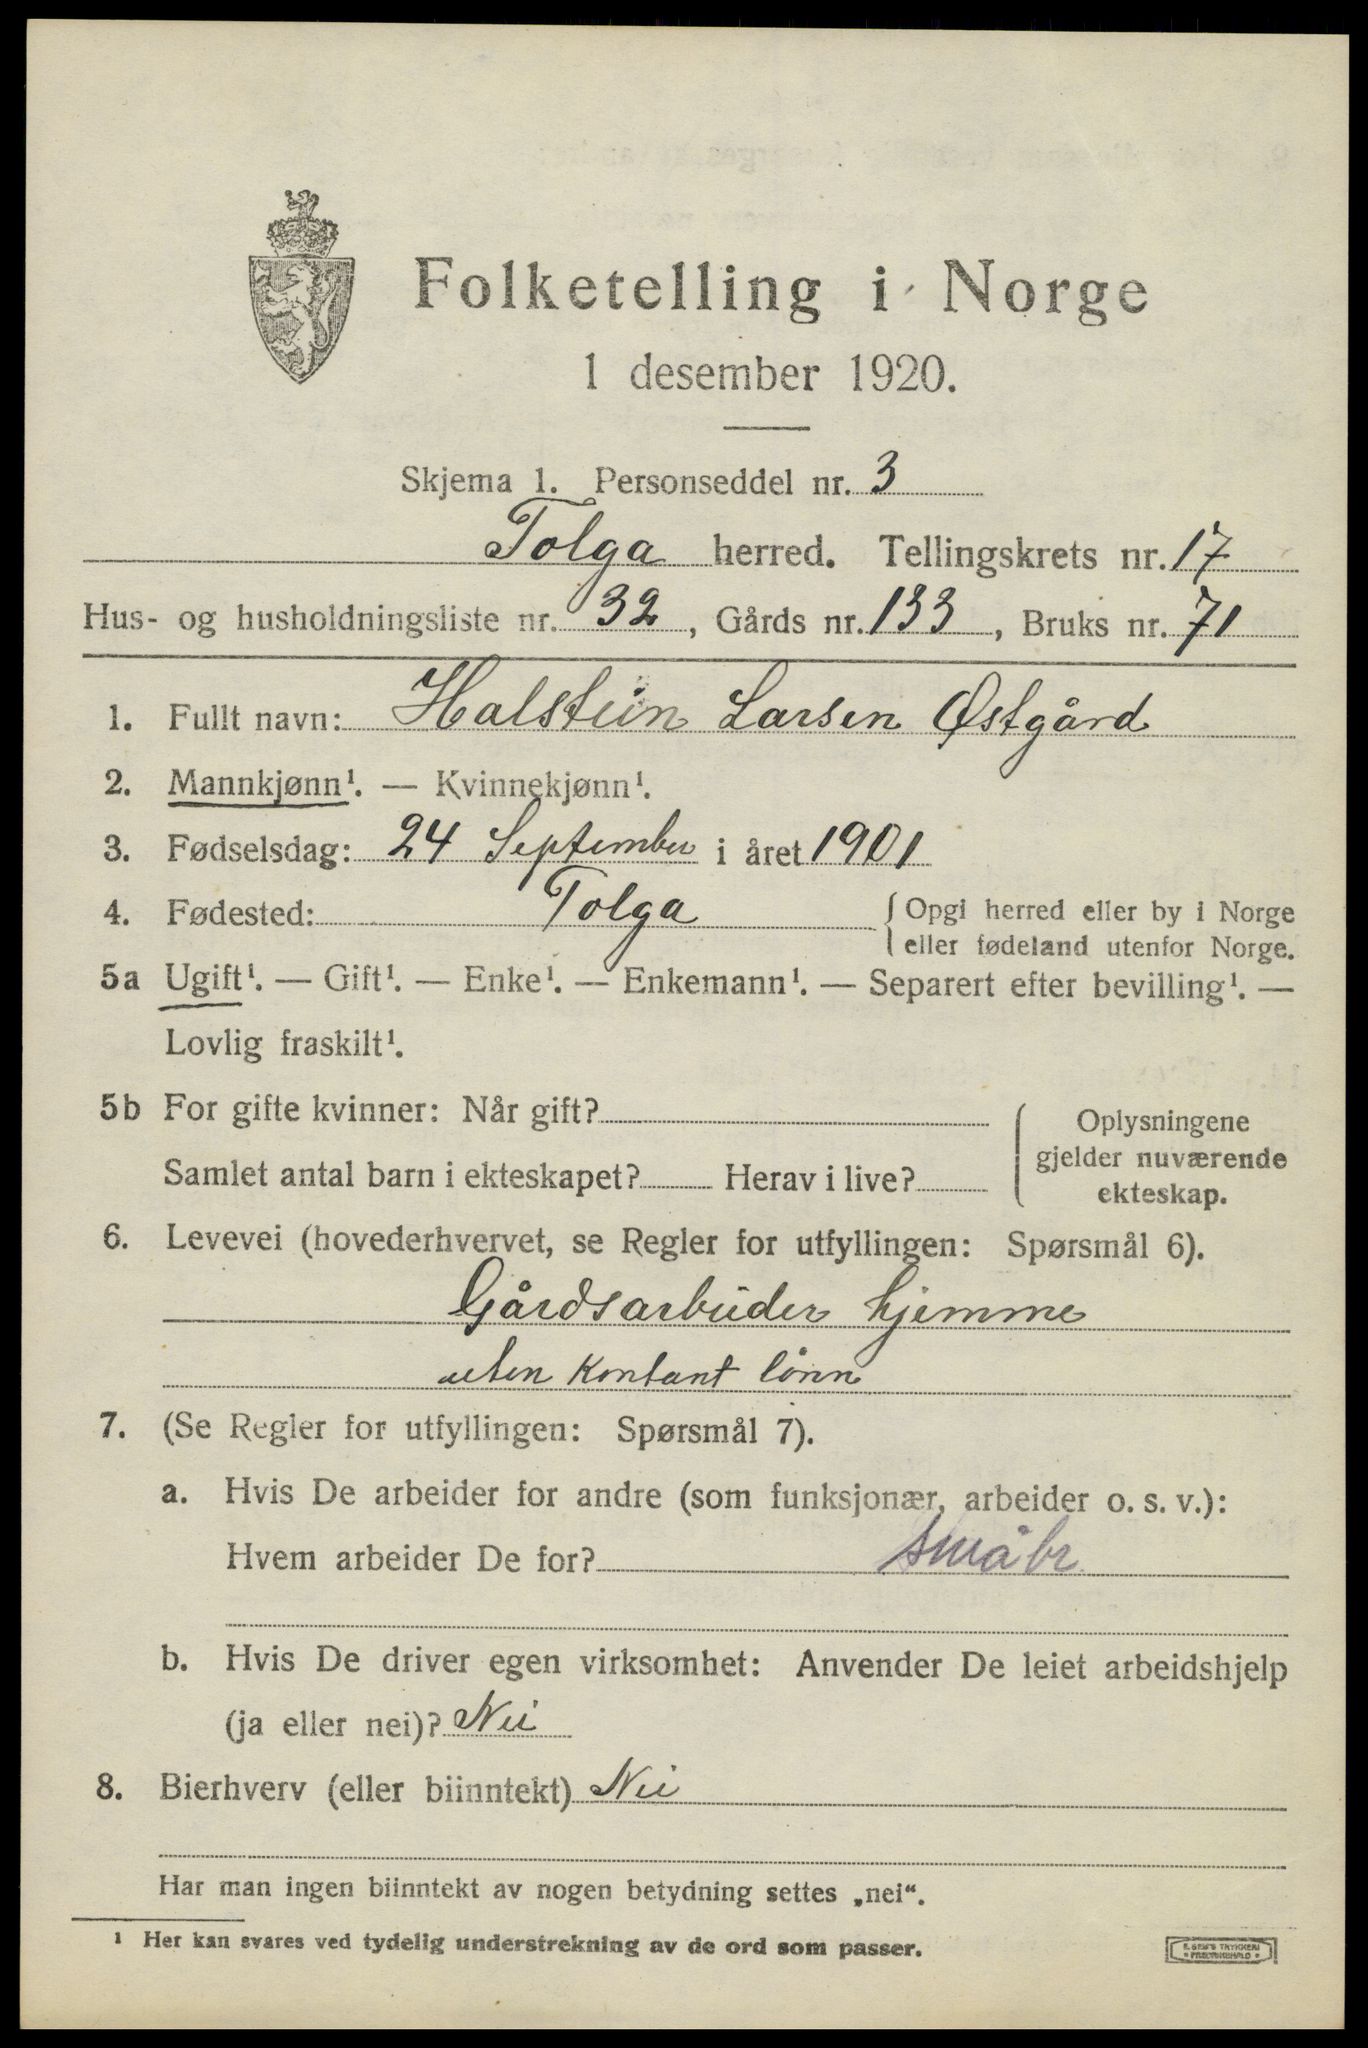 Folketelling i Norge
1 desember 1920.
Skjema 1. Personseddel nr. 3
Tolga herred. Tellingskrets nr. 17
Hus- og husholdningsliste nr. 32, Gårds nr. 133, Bruks nr. 71
1. Fullt navn: Halstein Larsen Østgård
2. Mannkjønn¹. — Kvinnekjønn¹.
3. Fødselsdag: 24 September i året 1901
4. Fødested: Tolga { Opgi herred eller by i Norge
eller fødeland utenfor Norge.
5a Ugift¹. — Gift¹. — Enke¹. — Enkemann¹. — Separert efter bevilling¹. —
Lovlig fraskilt¹.
5b For gifte kvinner: Når gift?
Samlet antal barn i ekteskapet? Herav i live?
Oplysningene
gjelder nuværende
ekteskap.
6. Levevei (hovederhvervet, se Regler for utfyllingen: Spørsmål 6).
Gårdsarbeider hjemme
uten kontant lönn
7. (Se Regler for utfyllingen: Spørsmål 7).
a. Hvis De arbeider for andre (som funksjonær, arbeider o. s. v.):
Hvem arbeider De for? småbr.
b. Hvis De driver egen virksomhet: Anvender De leiet arbeidshjelp
(ja eller nei)? Nei
8. Bierhverv (eller biinntekt) Nei
Har man ingen biinntekt av nogen betydning settes „nei“.
¹ Her kan svares ved tydelig understrekning av de ord som passer.